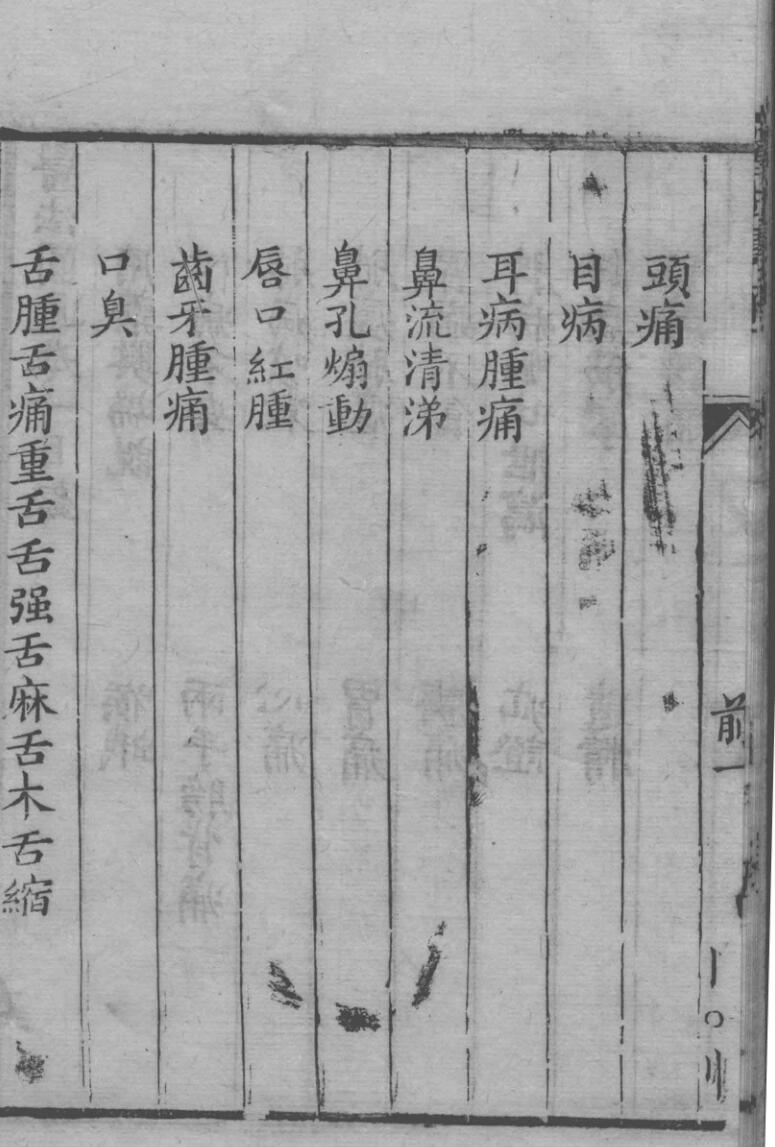 頭痛
目病
耳病腫痛
鼻流清涕
鼻孔煽動
唇口紅腫
齒牙腫痛
口臭
舌腫舌痛重舌舌强舌麻舌木舌縮
前一